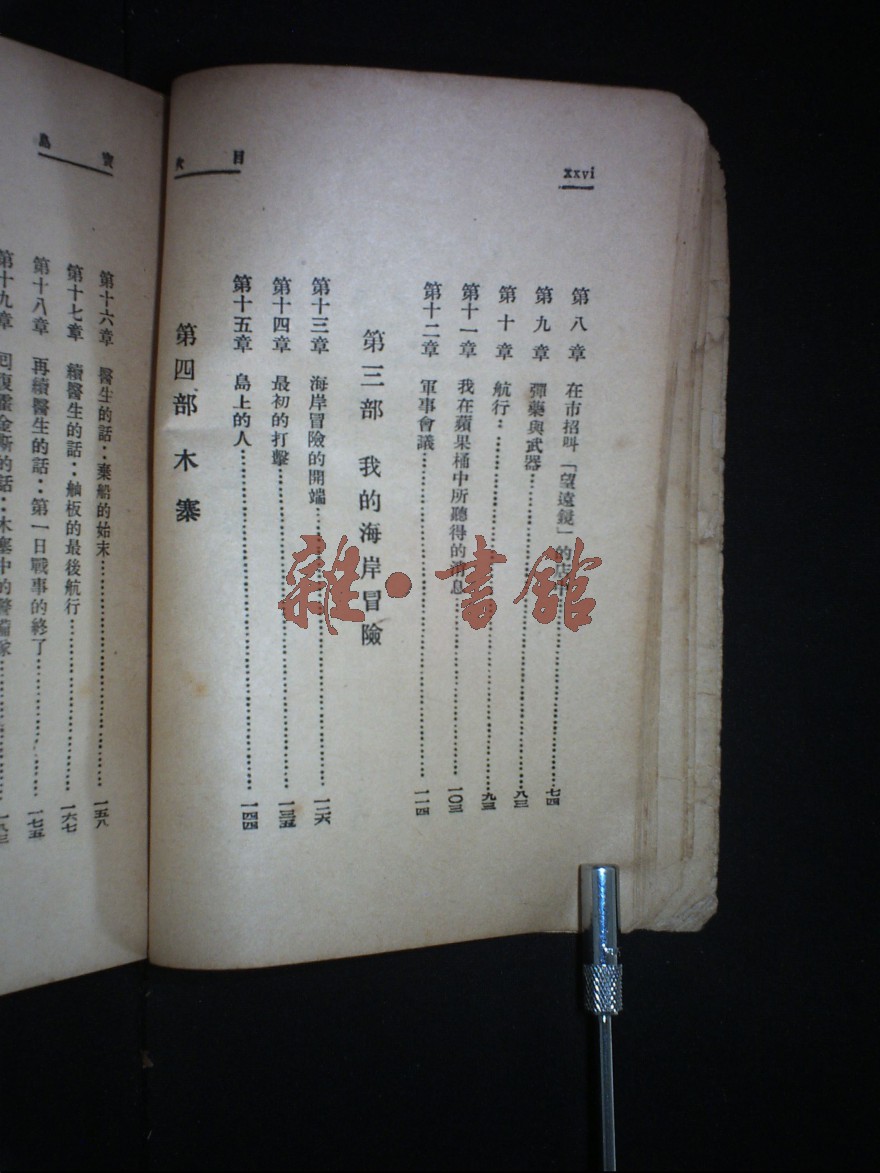 xxvi
目次
第八章 在市招叫「望遠鏡」的店中………七四
第九章 彈藥與武器………八三
第十章 航行………九三
第十一章 我在蘋果桶中所聽得的消息………一〇三
第十二章 軍事會議………一一四
第三部 我的海岸冒險
第十三章 海岸冒險的開端………一二六
第十四章 最初的打擊………一三五
第十五章 島上的人………一四四
第四部 木寨
寶島
第十六章 醫生的話：棄船的始末………一五八
第十七章 續醫生的話：舢板的最後航行………一六七
第十八章 再續醫生的話：第一日戰事的終了………一七五
第十九章 的話：木寨中的警備隊………一八三
雜·書館